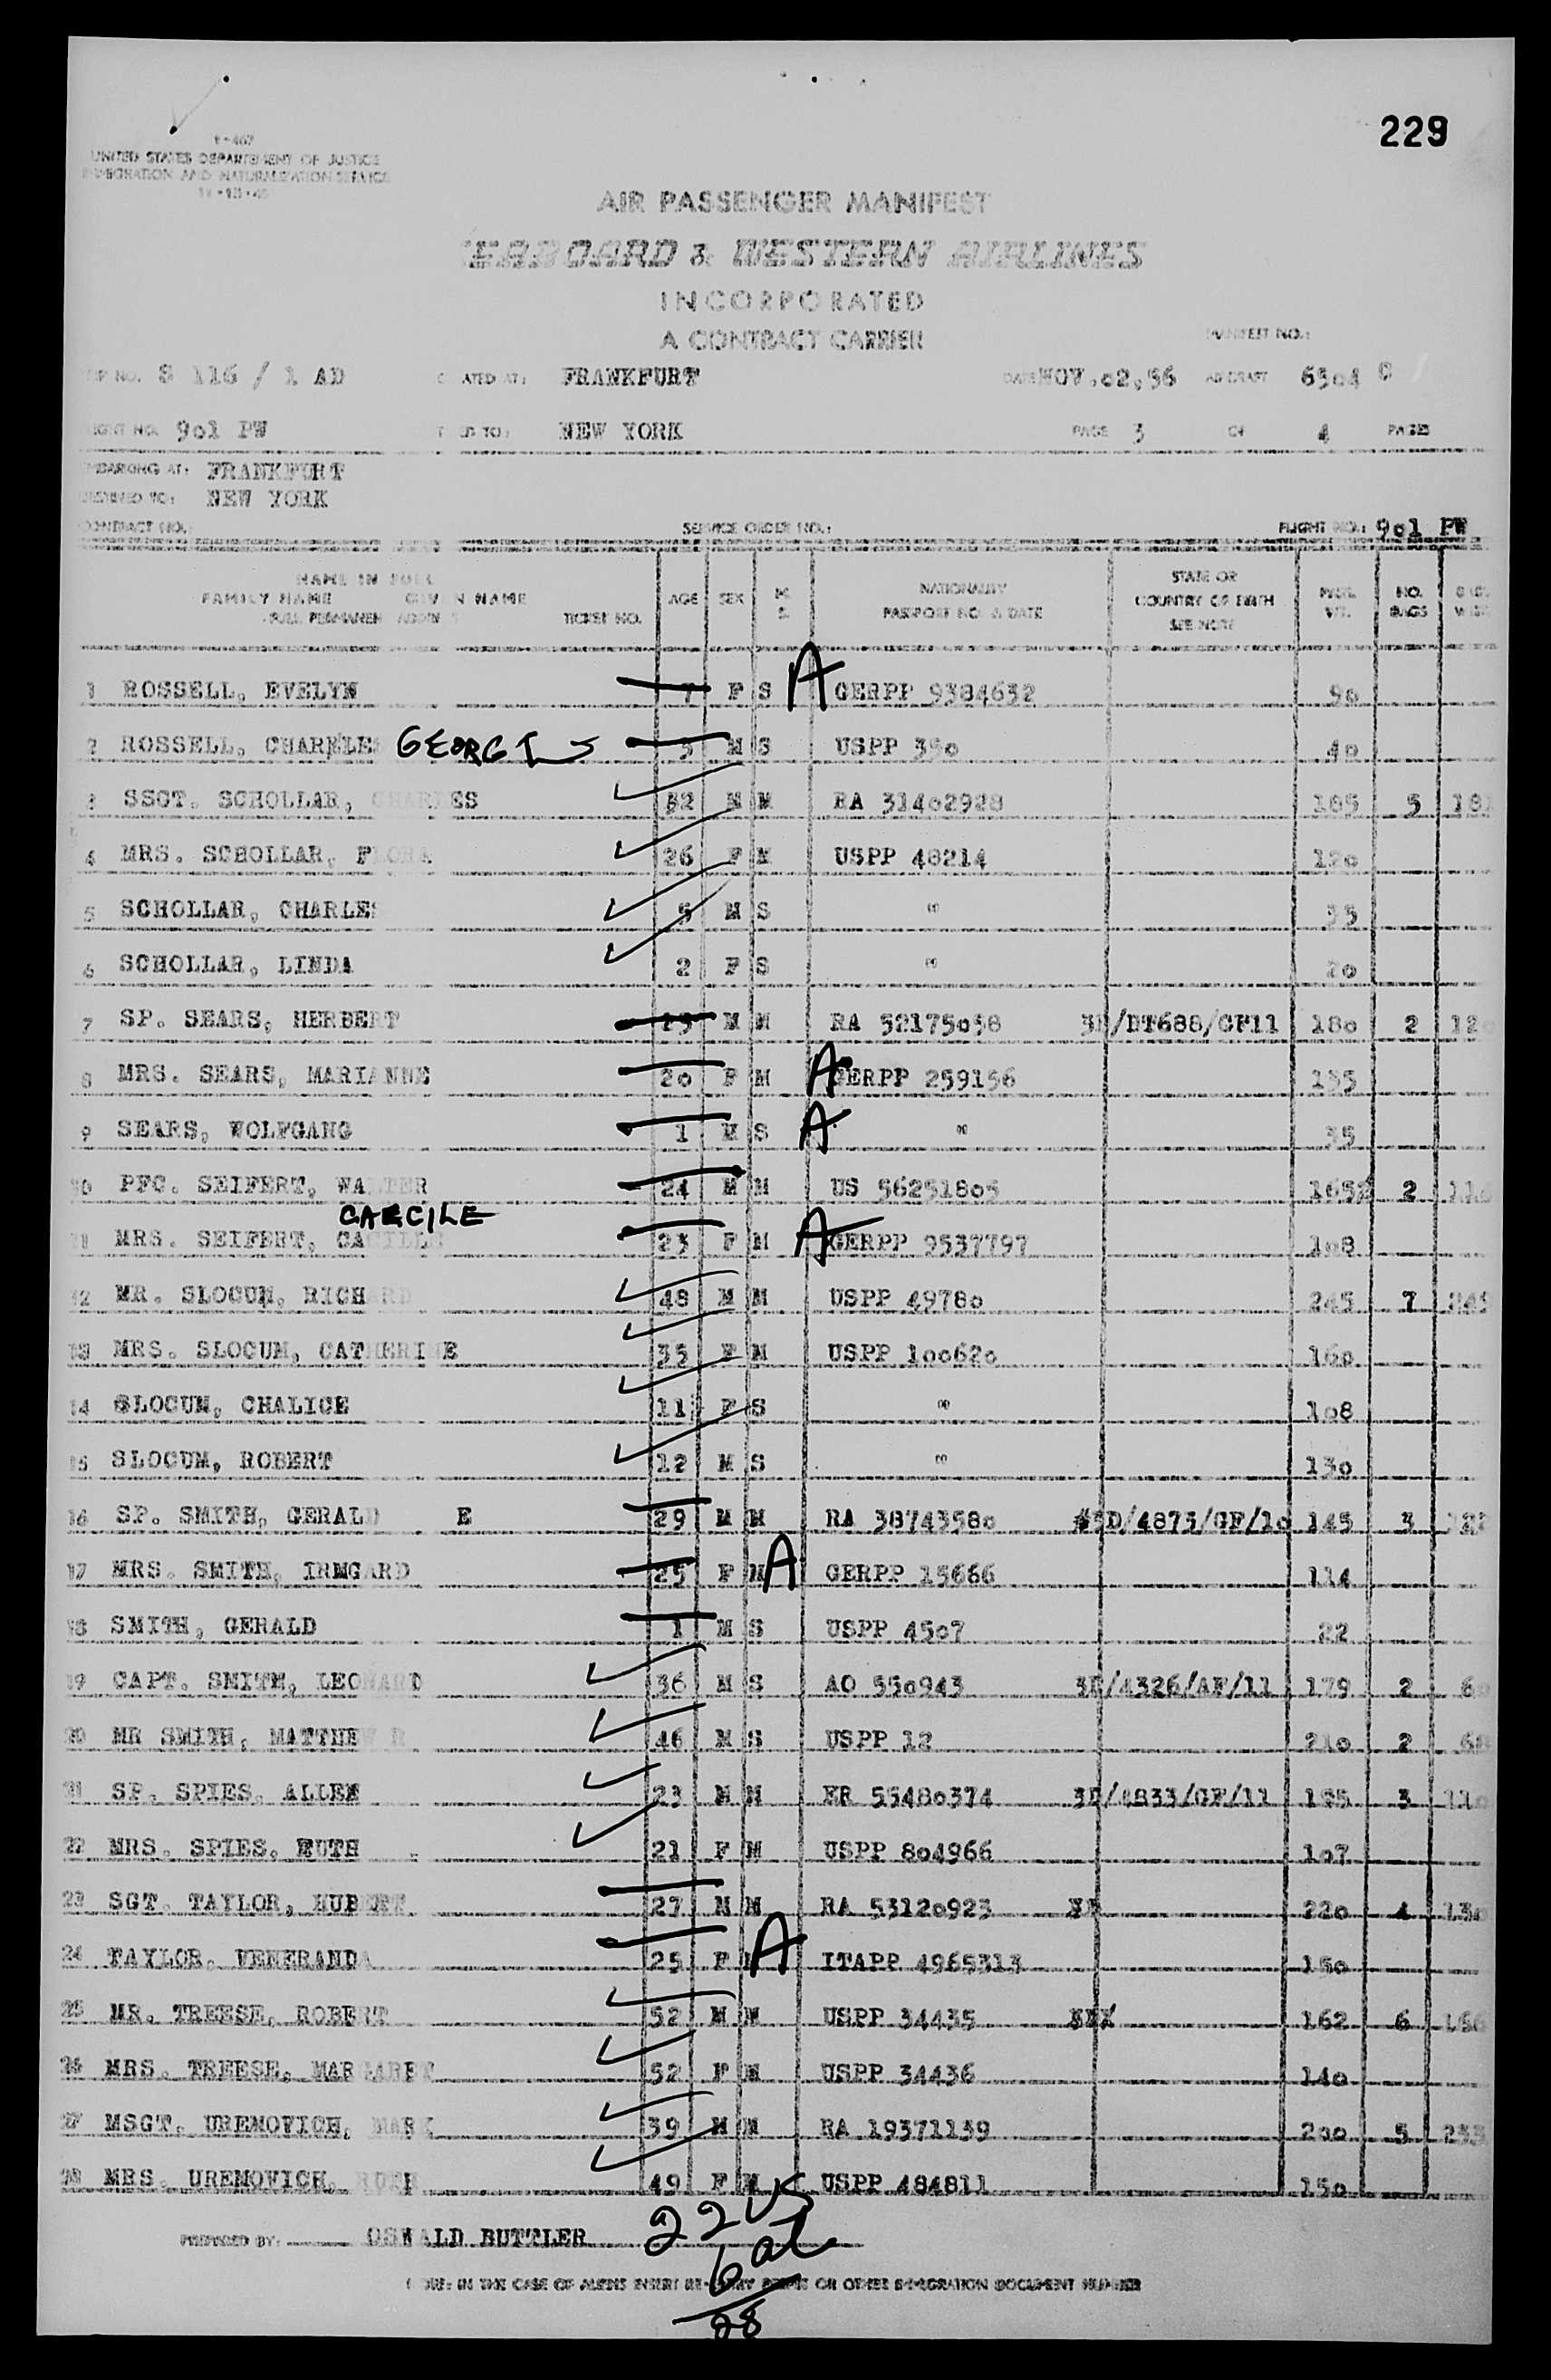 229
UNITED STATES DEPARTMENT OF JUSTICE
IMMIGRATION AND NATURALIZATION SERVICE
AIR PASSENGER MANIFEST
EABOARD & WESTERN AIRLINES
INCORPORATED
A CONTRACT CARRIER
MANIFEST NO.:
NO. S 116 / 1 AD ATED AT: FRANKFURT DATE NOV.02,56 AIRCRAFT 6504 C
FLIGHT NO. 901 PW ED TO: NEW YORK PAGE 3 OF 4 PAGES
EMBARKING AT: FRANKFURT
DESTINED TO: NEW YORK
CONTRACT NO. SERVICE ORDER NO.: FLIGHT NO.: 901 PW
NAME IN FULL
FAMILY NAME GIVEN NAME TICKET NO. AGE SEX M S NATIONALITY PASSPORT NO & DATE STATE OR COUNTRY OF BIRTH SEE NOTE WT. NO. BAGS
1 ROSSELL, EVELYN 7 F S A GERPP 9384632 90
2 ROSSELL, CHARLES GEORGE 5 M S USPP 390 40
3 SSGT. SCHOLLAR, CHARLES 32 M M RA 31402928 185 5 181
4 MRS. SCHOLLAR, FLORA 26 F M USPP 48214 120
5 SCHOLLAR, CHARLES 5 M S " 35
6 SCHOLLAR, LINDA 2 F S " 20
7 SP. SEARS, HERBERT 23 M M RA 52175058 3D/DT688/GF11 180 2 12
8 MRS. SEARS, MARIANNE 20 F M A GERPP 259156 135
9 SEARS, WOLFGANG 1 M S A " 35
10 PFC. SEIFERT, WALTER 24 M M US 56251805 165 2 11
11 MRS. SEIFERT, CAECILE 23 F M A GERPP 9537797 108
12 MR. SLOCUM, RICHARD 48 M M USPP 49780 245 7 245
13 MRS. SLOCUM, CATHERINE 35 F M USPP 100620 160
14 SLOCUM, CHALICE 11 F S " 108
15 SLOCUM, ROBERT 12 M S " 130
16 SP. SMITH, GERALD E 29 M M RA 38743580 3D/4875/GF/10 145 3
17 MRS. SMITH, IRMGARD 25 F M A GERPP 15666 114
18 SMITH, GERALD 1 M S USPP 4507 22
19 CAPT. SMITH, LEONARD 36 M S AO 550943 3D/4326/AF/11 179 2 6
20 MR SMITH, MATTHEW R 46 M S USPP 12 210 2 68
21 SP. SPIES, ALLEN 23 M M ER 55480374 3D/4833/GF/11 195 3 110
22 MRS. SPIES, RUTH 21 F M USPP 804966 107
23 SGT. TAYLOR, HUBERT 27 M M RA 53120923 220 4 130
24 TAYLOR, VENERANDA 25 F A ITAPP 4965313 150
25 MR. TREESE, ROBERT 52 M M USPP 34435 162 6 166
26 MRS. TREESE, MARGARET 52 F M USPP 34436 140
27 MSGT. UREMOVICH, MARK 39 M M RA 19371139 200 5 233
28 MRS. UREMOVICH, RUTH 49 F M USPP 484811 150
PREPARED BY: OSWALD BUTTLER
22 US
6 al
NOTE: IN THE CASE OF ALIENS INSERT RE-ENTRY PERMIT OR OTHER IMMIGRATION DOCUMENT NUMBER
28